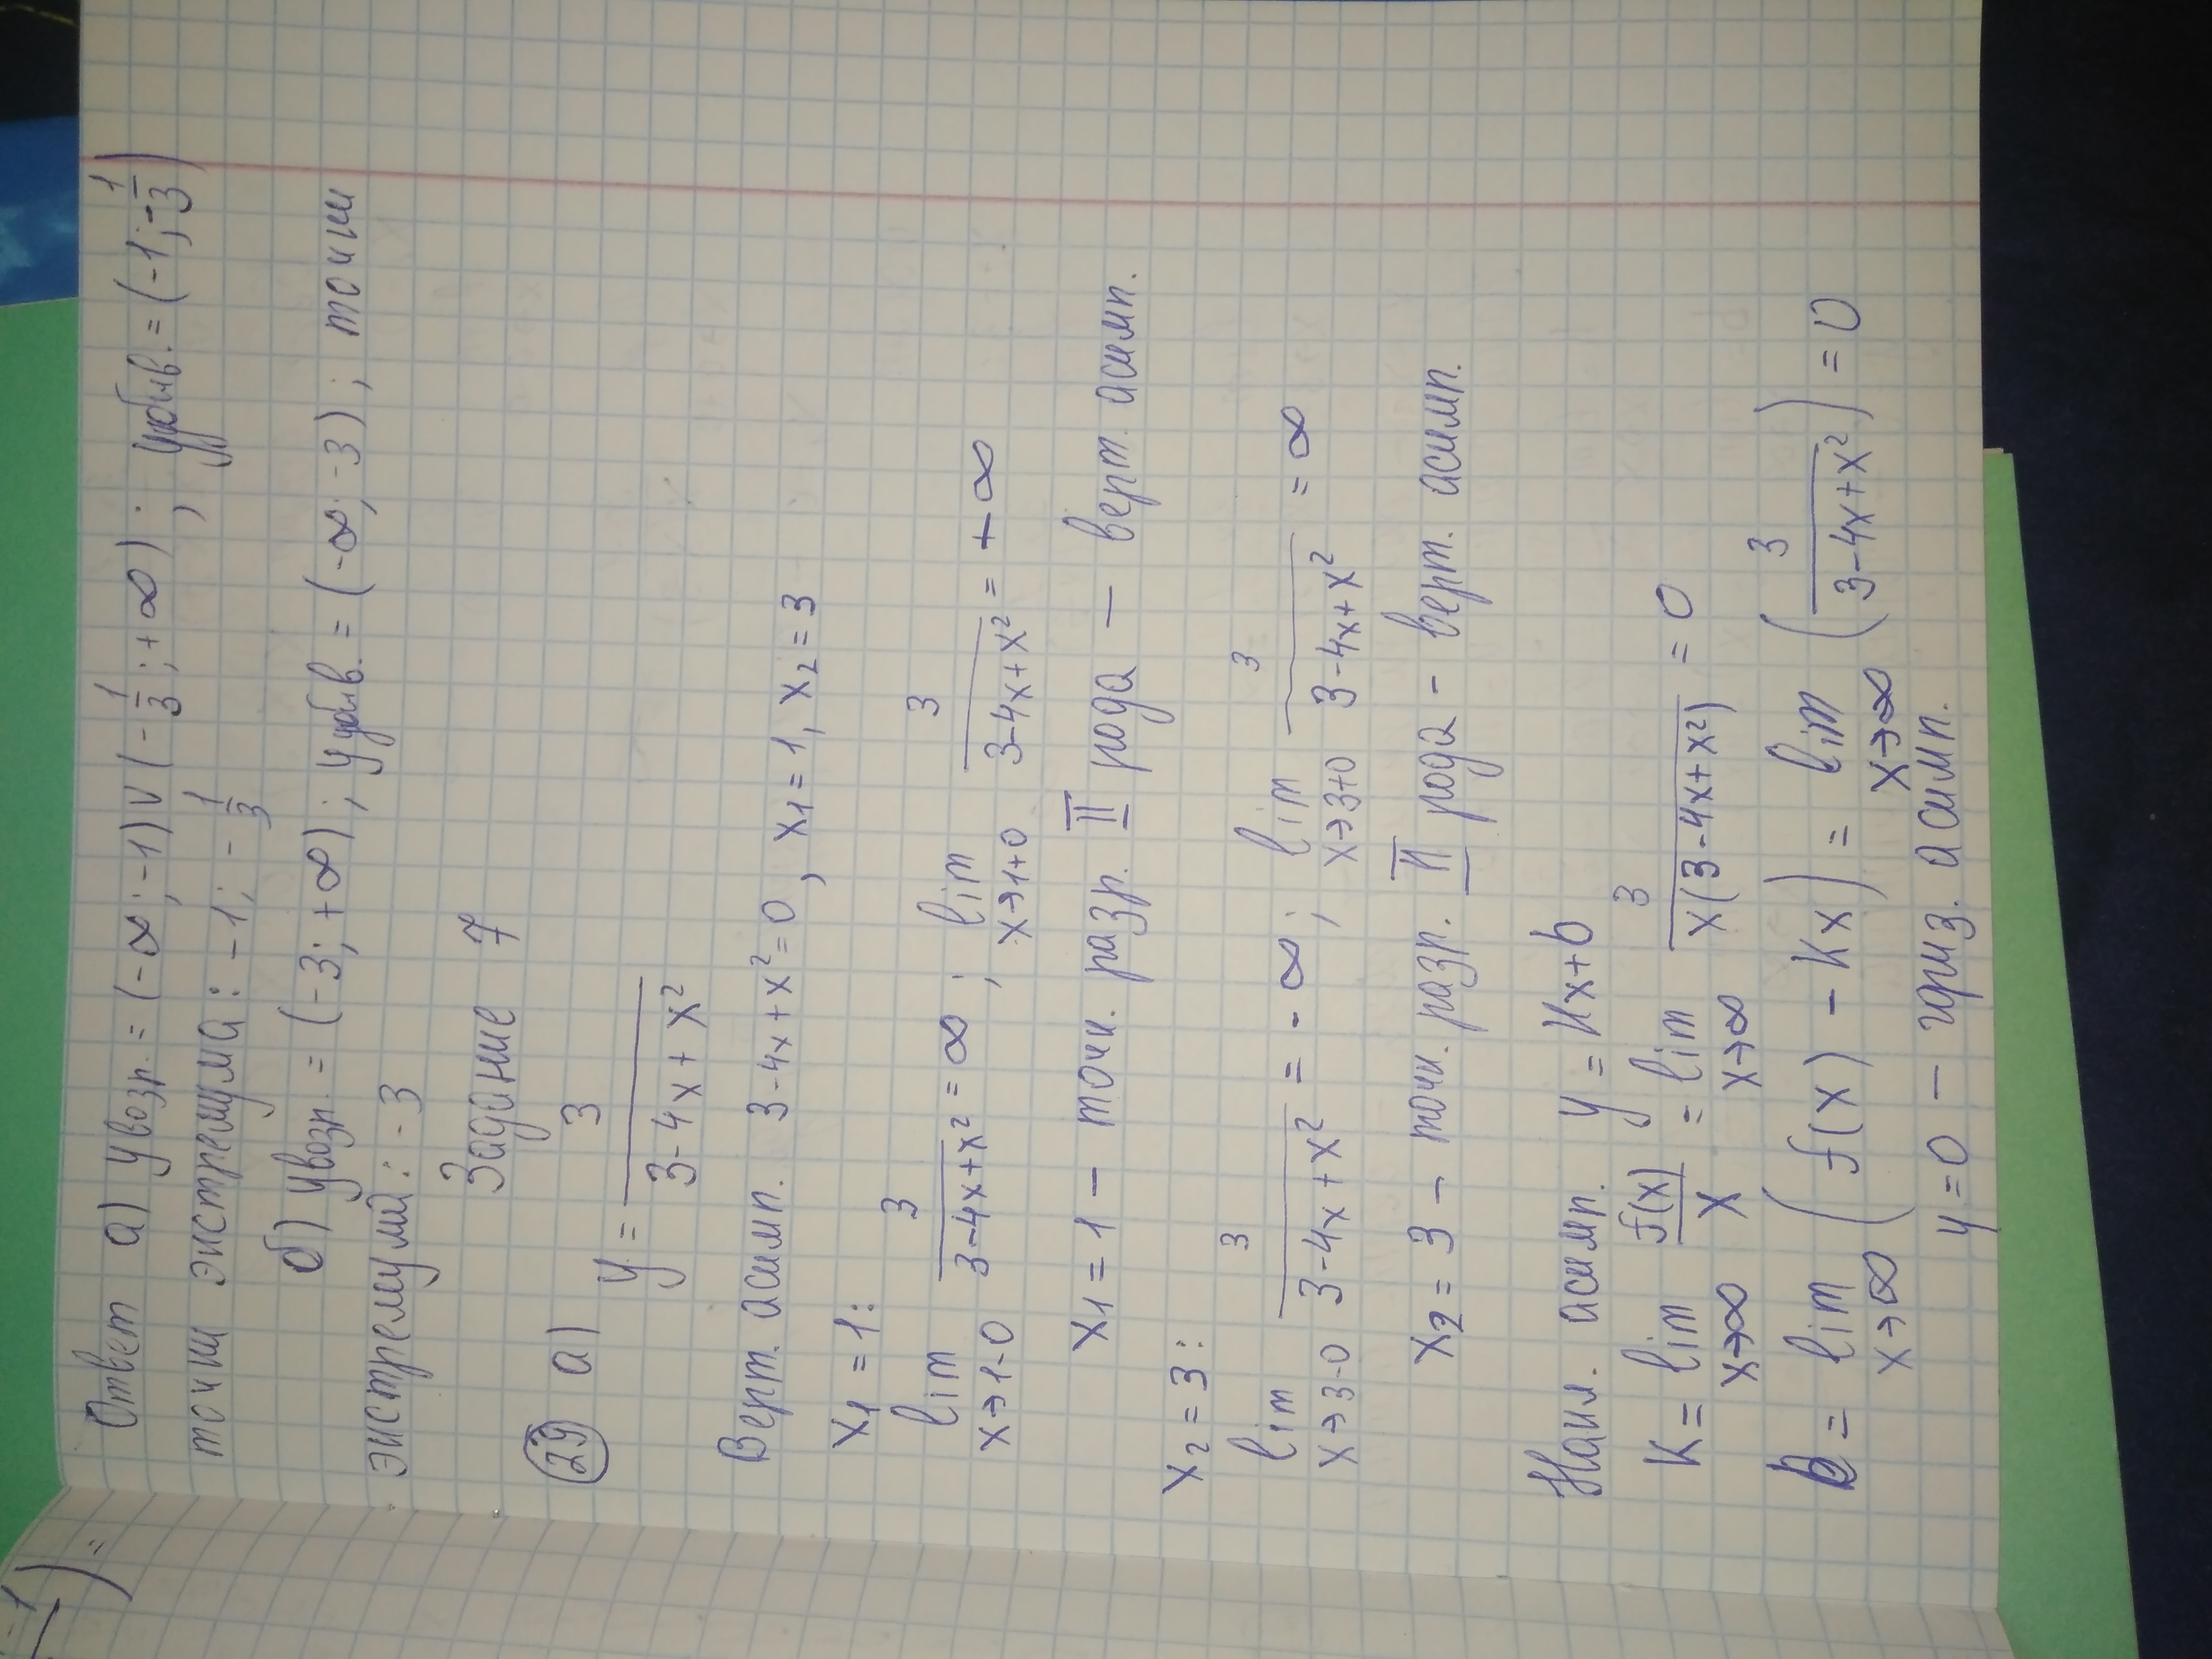 -1) =
Ответ а) у возр. = (-∞; -1) ∨ (-1/3; +∞); у убыв. = (-1; -1/3)
точки экстремума: -1; -1/3
б) у возр. = (-3; +∞); у убыв. = (-∞; -3); точки
экстремума: -3
Задание 7
29 а)
y = 3/(3-4x+x²)
Верт. асимп. 3-4x+x²=0, x₁=1, x₂=3
x₁=1:
lim x→1-0 3/(3-4x+x²) = ∞; lim x→1+0 3/(3-4x+x²) = +∞
x₁=1 – точк. разр. II рода — верт. асимп.
x₂=3:
lim x→3-0 3/(3-4x+x²) = -∞; lim x→3+0 3/(3-4x+x²) = ∞
x₂=3 – точк. разр. II рода – верт. асимп.
Накл. асимп. y = kx+b
K = lim x→∞ f(x)/x = lim x→∞ 3/(x(3-4x+x²)) = 0
b = lim x→∞ (f(x) - kx) = lim x→∞ (3/(3-4x+x²)) = 0
y=0 — гориз. асимп.